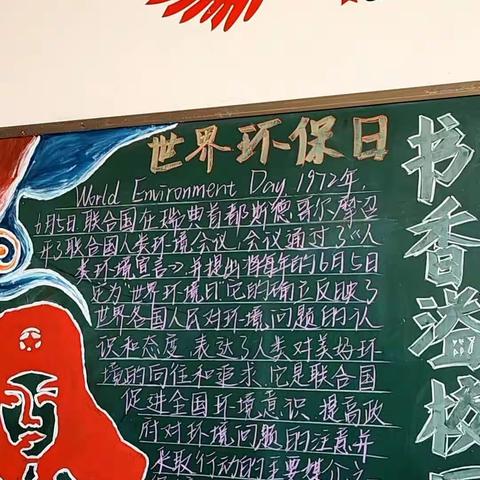 世界环保日
World Environment Day 1972年,
6月5日联合国在瑞典首都斯德哥尔摩召
开了联合国人类环境会议,会议通过了《人
类环境宣言》,并提出将每年的6月5日
定为"世界环境日"它的确立反映了
世界各国人民对环境问题的认
识和态度,表达了人类对美好环
境的向往和追求.它是联合国
促进全国环境意识.提高政
府对环境问题的注意并
采取行动的主要媒介之
书香溢校